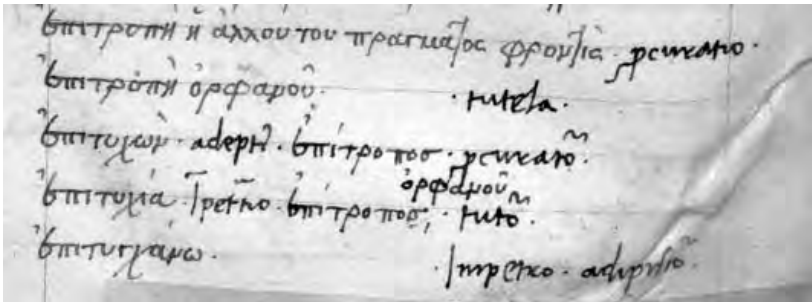 ἐπιτροπὴ ἡ ἄλλου του πράγματος φροντὶς · pcuratio ·
ἐπιτρόπὴ ὀρφανοῦ · tutela ·
ἐπιτυχὼν · adept9 · ἐπίτροποσ · pcurator ·
ὀρφανοῦ
ἐπιτυχία · īpetrō · ἐπίτροπος, tutor ·
ἐπιτυγχάνω · Impetro · adipiscor